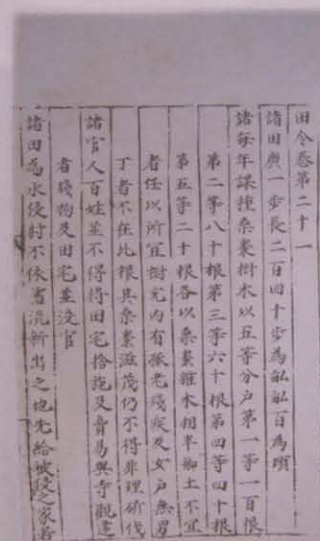 田令卷第二十一
諸田廣一步長二百四十步為畝畝百為頃
諸每年課種桑棗樹木以五等分戶第一等一百根
第二等八十根第三等六十根第四等四十根
第五等二十根各以桑棗雜木相半鄉土不宜
者任以所宜樹充內有孤老殘疾及女戶無男
丁者不在此根其桑棗滋茂仍不得非理斫伐
諸官人百姓並不得將田宅捨施及賣易與寺觀違
者錢物及田宅並沒官
諸田為水侵射不依舊流新出之地先給被侵之家若